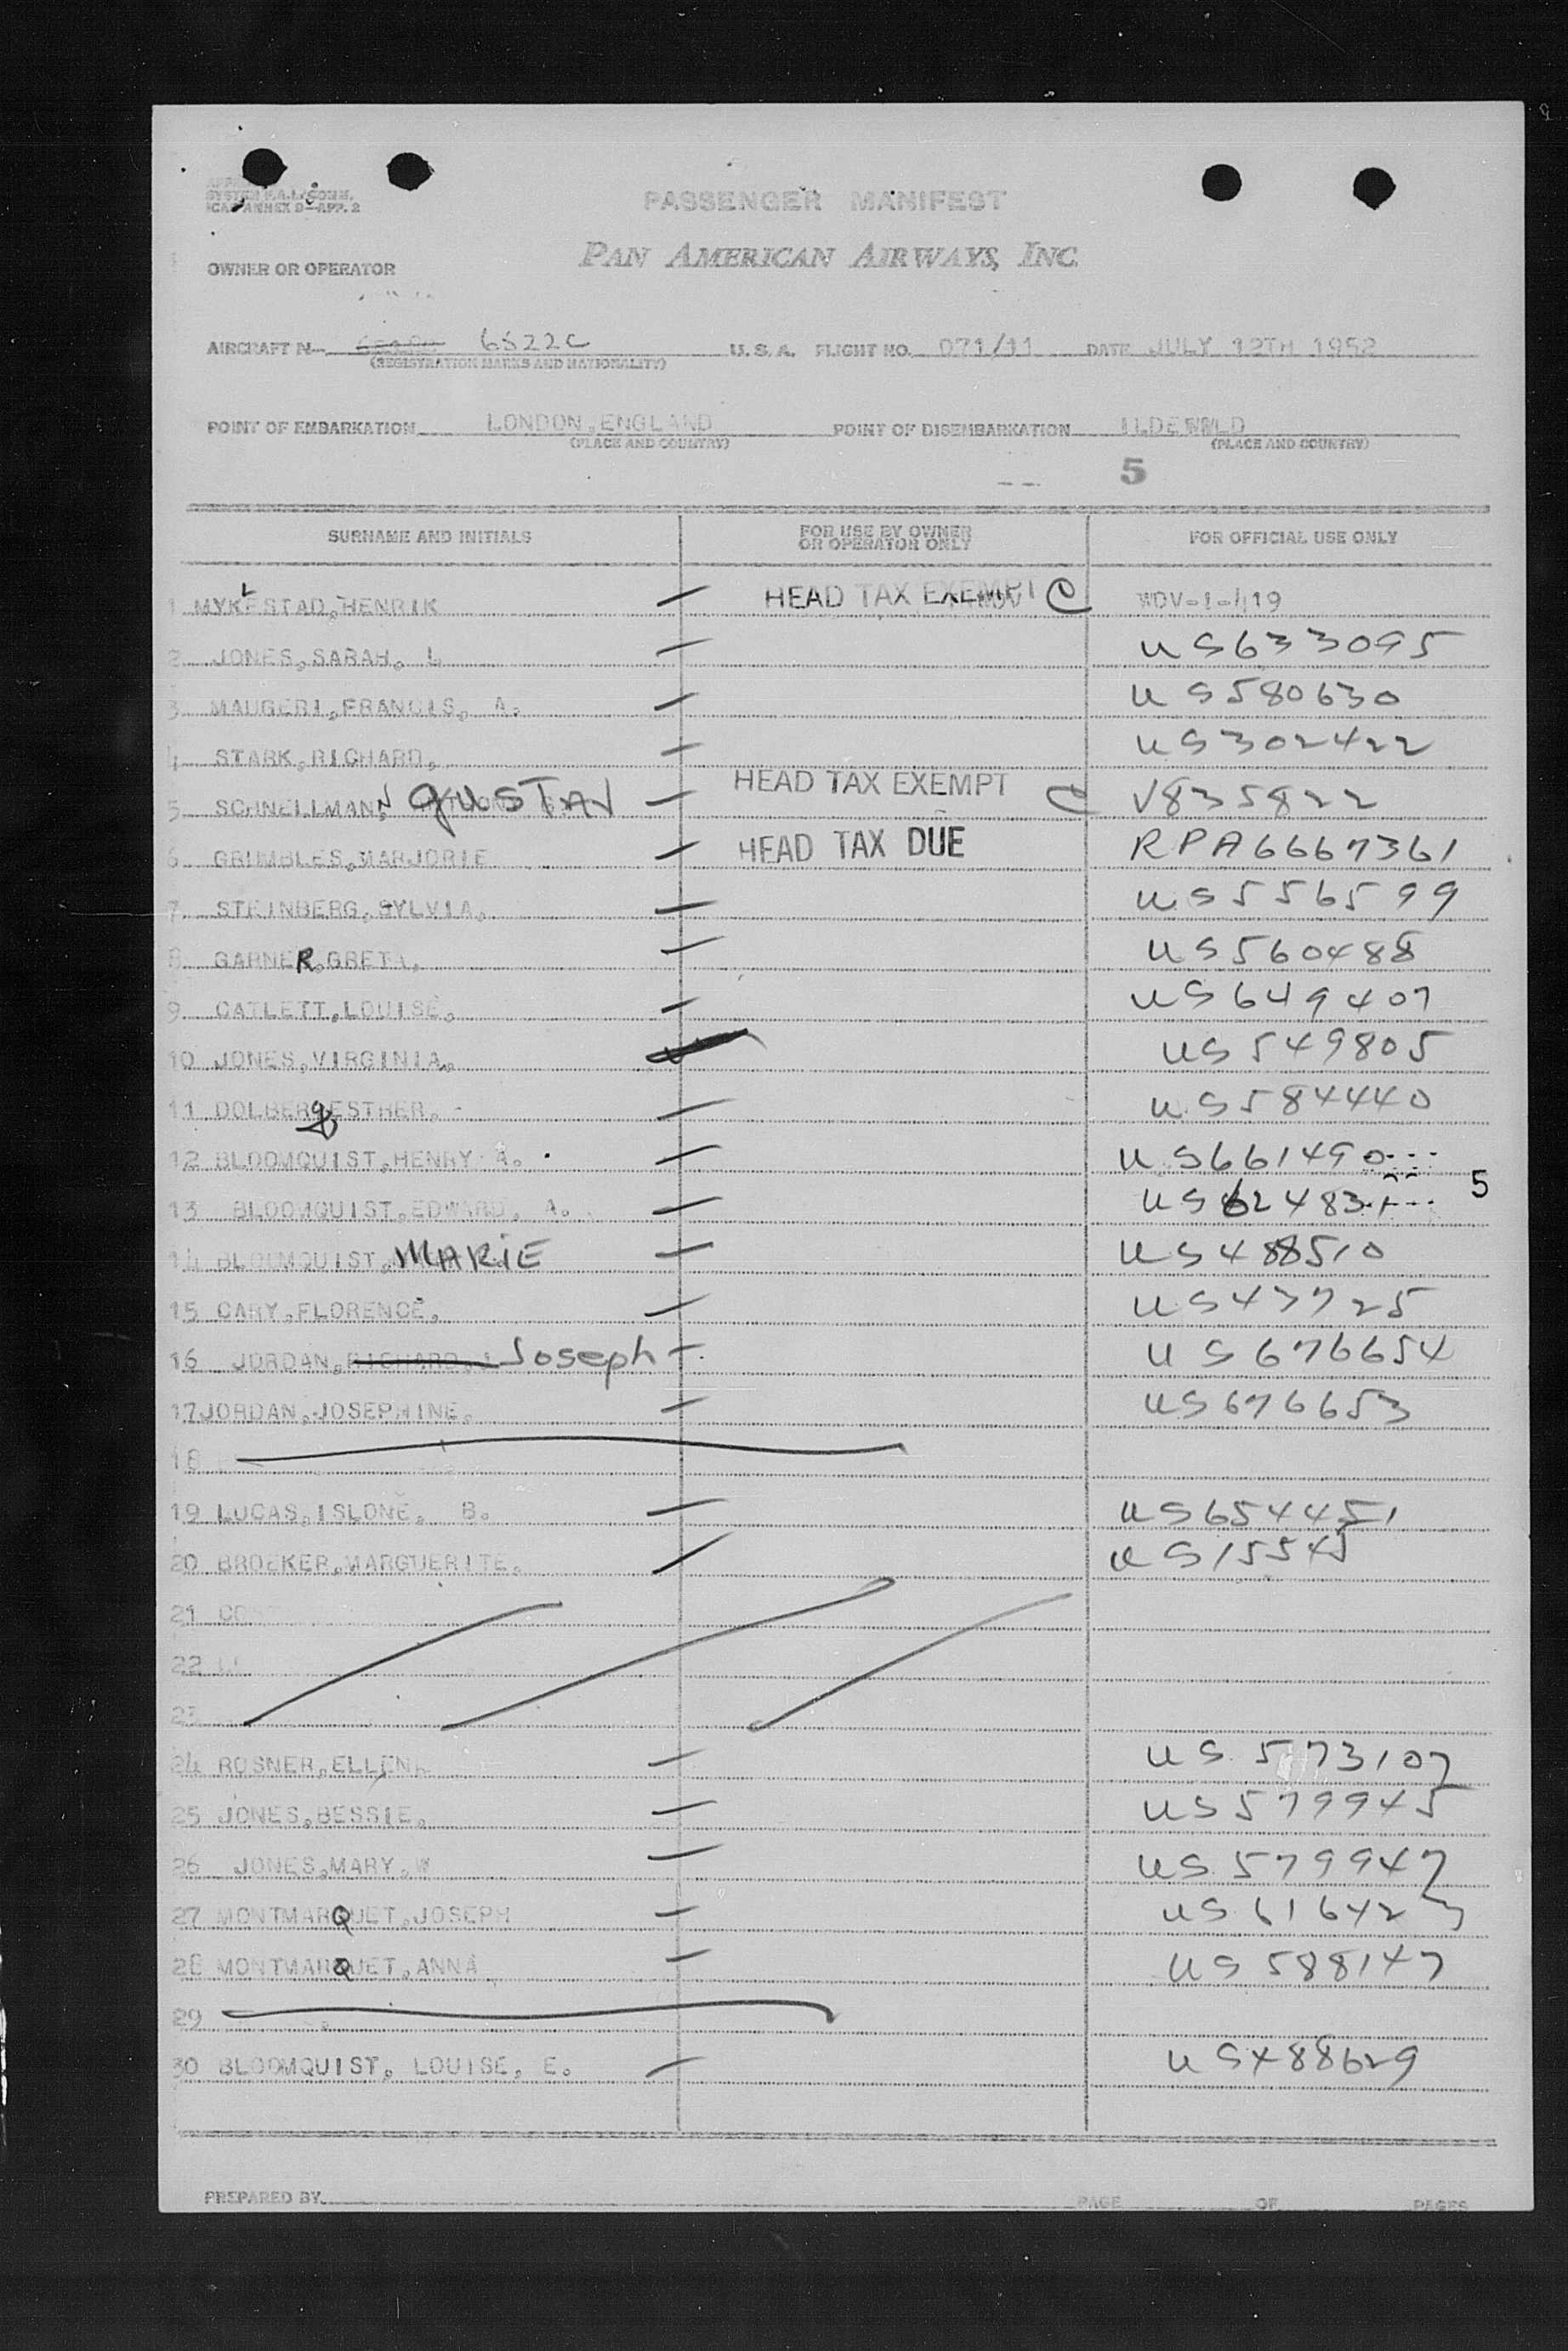 SYSTEM P.A.I. COMM.
ICAO ANNEX 9—APP. 2
PASSENGER MANIFEST
PAN AMERICAN AIRWAYS, INC.
OWNER OR OPERATOR
AIRCRAFT N— 6522C U.S.A. FLIGHT NO. 071/11 DATE JULY 12TH 1952
(REGISTRATION MARKS AND NATIONALITY)
POINT OF EMBARKATION LONDON, ENGLAND POINT OF DISEMBARKATION ILDEWWLD
(PLACE AND COUNTRY) (PLACE AND COUNTRY)
5
SURNAME AND INITIALS FOR USE BY OWNER OR OPERATOR ONLY FOR OFFICIAL USE ONLY
1 MYKLESTAD, HENRIK HEAD TAX EXEMPT C WDV-1-419
2 JONES, SARAH, L US633095
3 MAUGERI, FRANCIS, A. US580630
4 STARK, RICHARD, US302422
5 SCHNELLMANN, GUSTAV HEAD TAX EXEMPT C V835822
6 GRIMBLES, MARJORIE HEAD TAX DUE RPA6667361
7 STEINBERG, SYLVIA, US556599
8 GARNER, GRETA, US560488
9 CATLETT, LOUISE, US649407
10 JONES, VIRGINIA, US549805
11 DOLBERG, ESTHER, US584440
12 BLOOMQUIST, HENRY A. US661490
13 BLOOMQUIST, EDWARD, A. US624831 5
14 BLOOMQUIST, MARIE US488510
15 CARY, FLORENCE, US47725
16 JORDAN, RICHARD, Joseph US676654
17 JORDAN, JOSEPHINE, US676653
18
19 LUCAS, ISLONE, B. US654451
20 BROEKER, MARGUERITE, US15545
21
22
23
24 ROSNER, ELLEN US 573107
25 JONES, BESSIE, US579945
26 JONES, MARY, W US579947
27 MONTMARQUET, JOSEPH US616423
28 MONTMARQUET, ANNA US588147
29
30 BLOOMQUIST, LOUISE, E. US488629
PREPARED BY PAGE OF PAGES